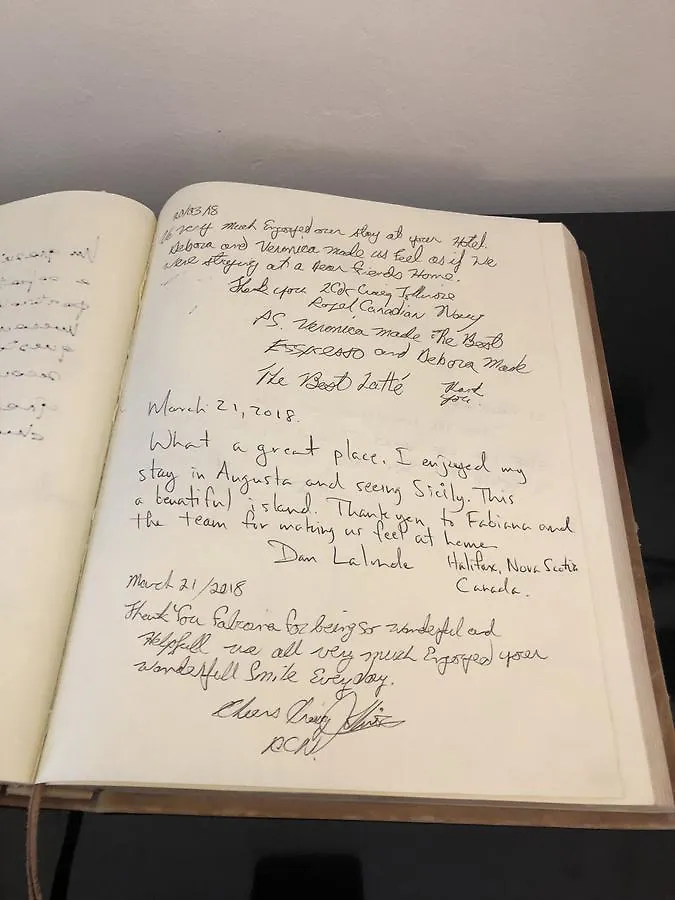 20/03/18
very much Enjoyed our stay at your Hotel.
Debora and Veronica made us Feel as if we
were straying at a Dear Friends Home.
Thank you Craig
Royal Canadian Navy
P.S. Veronica made The Best
Esspresso and Debora Made
The Best Latté Thank
you.
March 21, 2018.
What a great place. I enjoyed my
stay in Augusta and seeing Sicily. This
a beautiful island. Thank you to Fabiana and
the team for making us feel at home
Dan Lalonde Halifax, Nova Scotia
Canada.
March 21/2018
Thank You Fabiana for being so wonderful and
Helpfull we all very much Enjoyed your
wonderfull Smile Everyday.
Cheers Craig
RCN